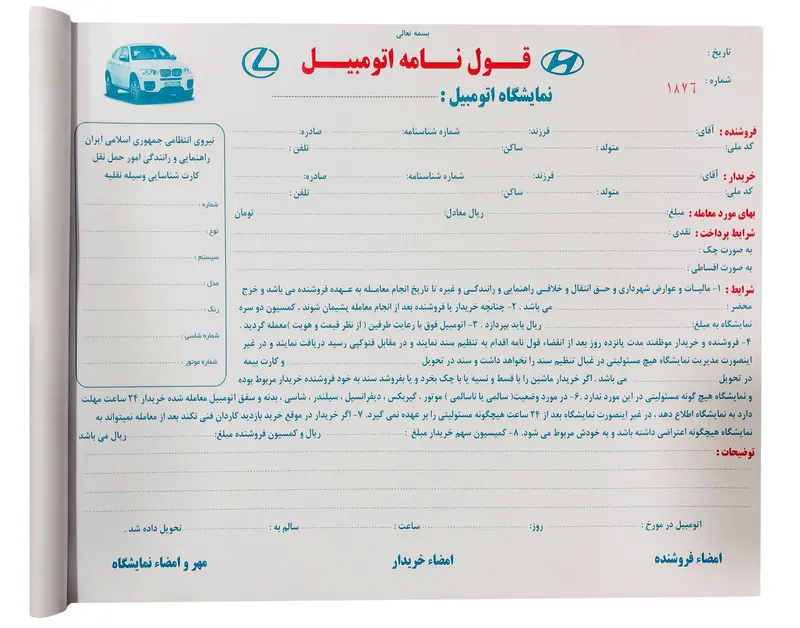 بسمه تعالی
قـول نـامه اتومبیـل
تاریخ :
شماره :
۱۸۷۶
نمایشگاه اتومبیل :
فروشنده : آقای: فرزند: شماره شناسنامه: صادره:
کد ملی: متولد : ساکن: تلفن :
خریدار : آقای: فرزند: شماره شناسنامه: صادره:
کد ملی: متولد : ساکن: تلفن :
بهای مورد معامله : مبلغ: ریال معادل: تومان
شرایط پرداخت : نقدی :
به صورت چک :
به صورت اقساطی :
نیروی انتظامی جمهوری اسلامی ایران
راهنمایی و رانندگی امور حمل نقل
کارت شناسایی وسیله نقلیه
شماره :
نوع :
سیستم :
مدل :
رنگ :
شماره شاسی :
شماره موتور :
شرایط : ۱- مالیات و عوارض شهرداری و حـق انتقال و خلافـی راهنمایی و رانندگـی و غیره تا تاریخ انجام معامـله به عهـده فروشنده می باشد و خرج
محضر : می باشد . ۲- چنانچه خریدار یا فروشنده بعد از انجام معامله پشیمان شوند . کمسیون دو سره
نمایشگاه به مبلغ: ریال باید بپردازد . ۳- اتومبیل فوق با رعایت طرفین ( از نظر قیمت و هویت )معمله گردید .
۴- فروشنده و خریدار موظفند مدت پانزده روز بعد از انقضاء قول نامه اقدام به تنظیم سند نمایند و در مقابل فتوکپی رسید دریافت نمایند و در غیر
اینصورت مدیریت نمایشگاه هیچ مسئولیتی در غبال تنظیم سند را نخواهد داشت و سند در تحویل و کارت بیمه
در تحویل می باشد . اگر خریدار ماشین را با قسط و نسیه یا با چک بخرد و یا بفروشد سند به خود فروشنده خریدار مربوط بوده
و نمایشگاه هیچ گونه مسئولیتی در این مورد ندارد .۶- در مورد وضعیت( سالمی یا ناسالمی ) موتور ، گیربکس ، دیفرانسیل ، سیلندر ، شاسی ، بدنه و سقق اتومبیل معامله شده خریدار ۲۴ ساعت مهلت
دارد به نمایشگاه اطلاع دهد ، در غیر اینصورت نمایشگاه بعد از ۲۴ ساعت هیچگونه مسئولیتی را بر عهده نمی گیرد. ۷- اگر خریدار در موقع خرید بازدید کاردان فنی نکند بعد از معامله نمیتواند به
نمایشگاه هیچگونه اعتراضی داشته باشد و به خودش مربوط می شود. ۸- کمیسیون سهم خریدار مبلغ : ریال و کمسیون فروشنده مبلغ: ریال می باشد
توضیحات :
اتومبیل در مورخ : روز: ساعت : سالم به : تحویل داده شد .
امضاء فروشنده امضاء خریدار مهر و امضاء نمایشگاه